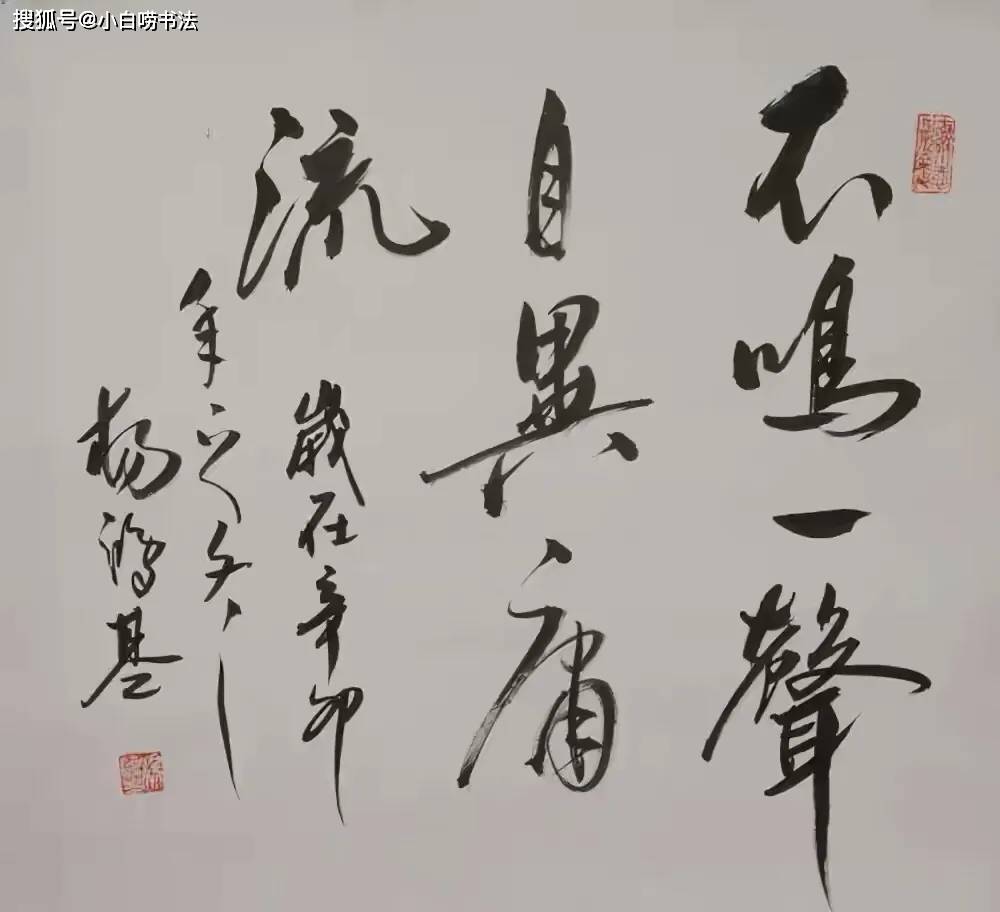 搜狐号@小白唠书法
不鳴一聲
自異庸
流
歲在辛卯
年之冬
楊鴻基